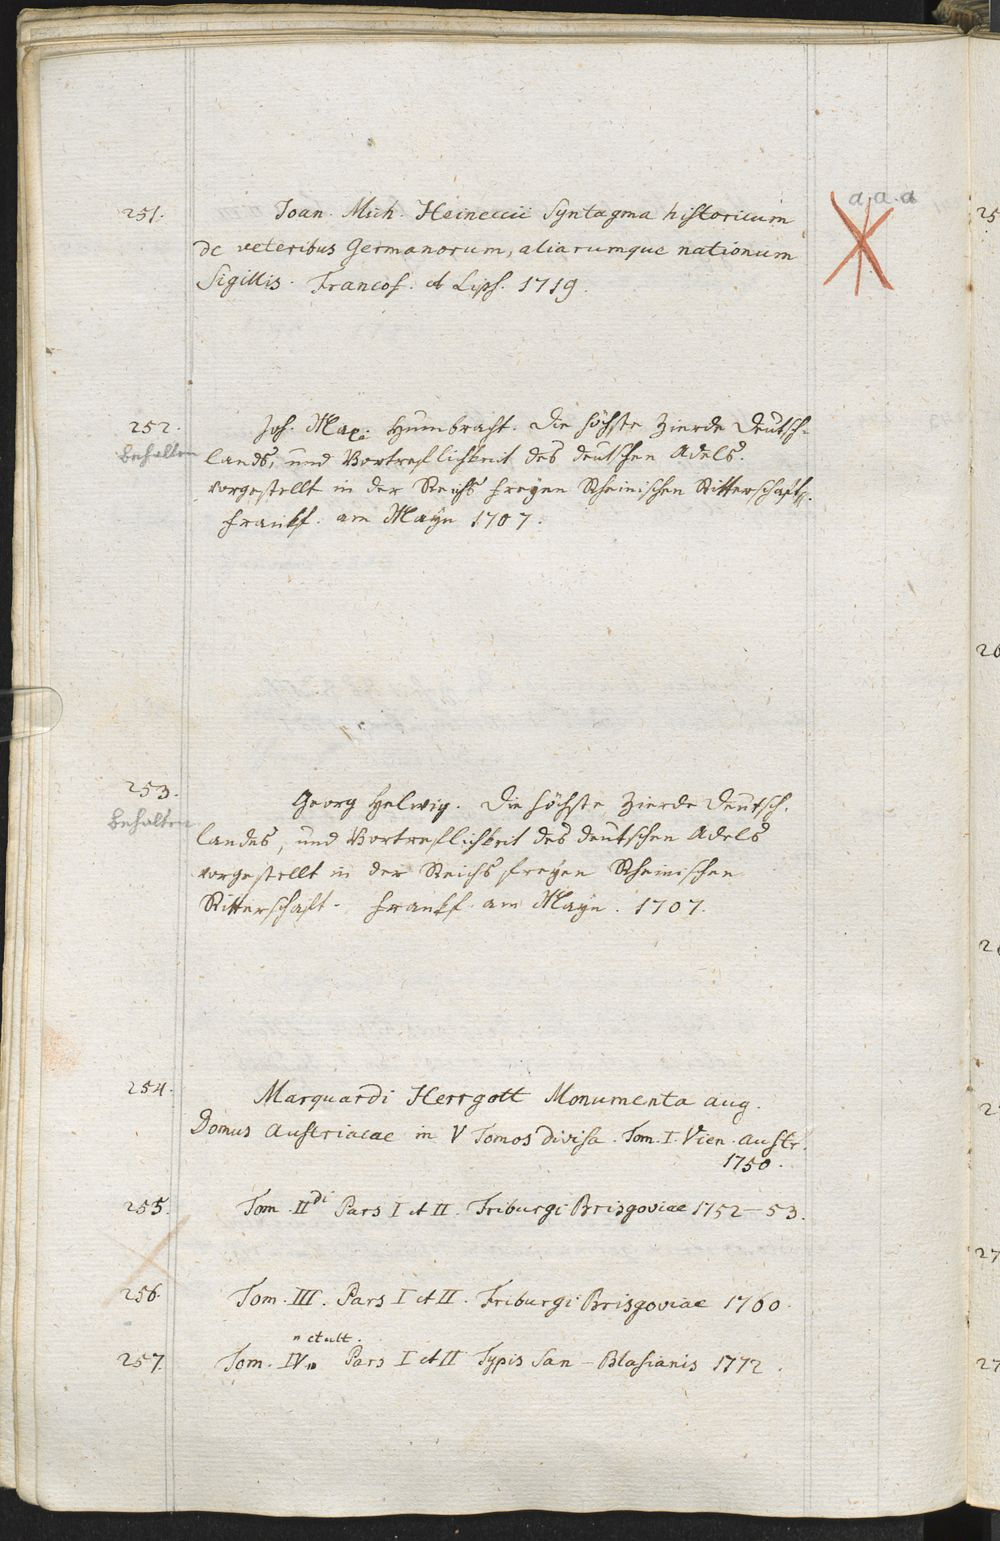 a. a. a
251. Joan. Mich. Heineccii Syntagma historicum
de veteribus Germanorum, aliarumque nationum
Sigillis. Francof. et Lips. 1719.
252. Joh. Max. Humbracht. Die höchste Zierde Deutsch-
behalten lands, und Vortreflichkeit des deutschen Adels.
vorgestellt in der Reichs freyen Rheinischen Ritterschaft.
Frankf. am Mayn 1707.
253. Georg Helwig. Die höchste Zierde Deutsch-
behalten landes, und Vortreflichkeit des deutschen Adels
vorgestellt in der Reichs freyen Rheinischen
Ritterschaft. Frankf. am Mayn. 1707.
254. Marquardi Herrgott Monumenta aug.
Domus Austriacae in V Tomos divisa. Tom. I. Vien. Austr.
1750.
255. Tom. II di Pars I et II. Friburgi Brisgoviae 1752-53.
256. Tom. III. Pars I et II. Friburgi Brisgoviae 1760.
" et ult.
257. Tom. IV " Pars I et II Typis San-Blasianis 1772.